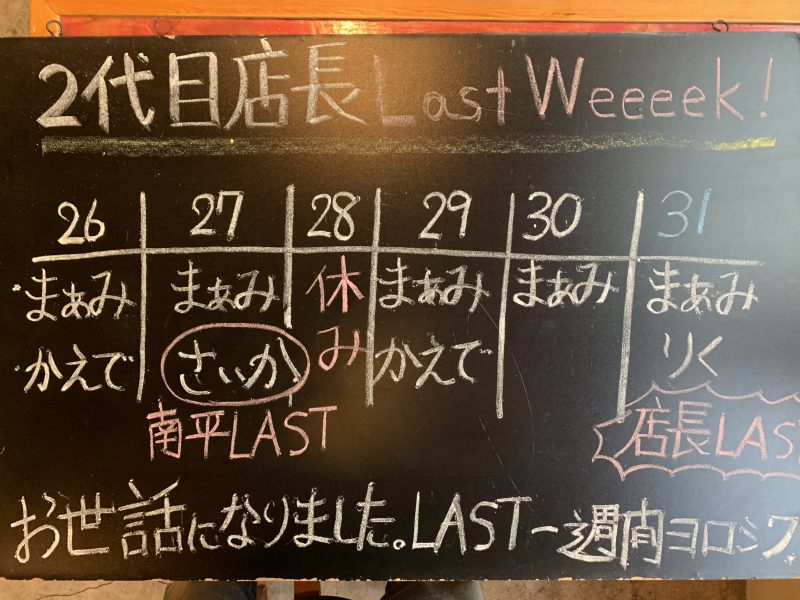 2代目店長 Last Weeeek!
26 27 28 29 30 31
まぁみ まぁみ 休み まぁみ まぁみ まぁみ
かえで さぃか かえで りく
南平LAST 店長LAS
お世話になりました。LAST一週間ヨロシク